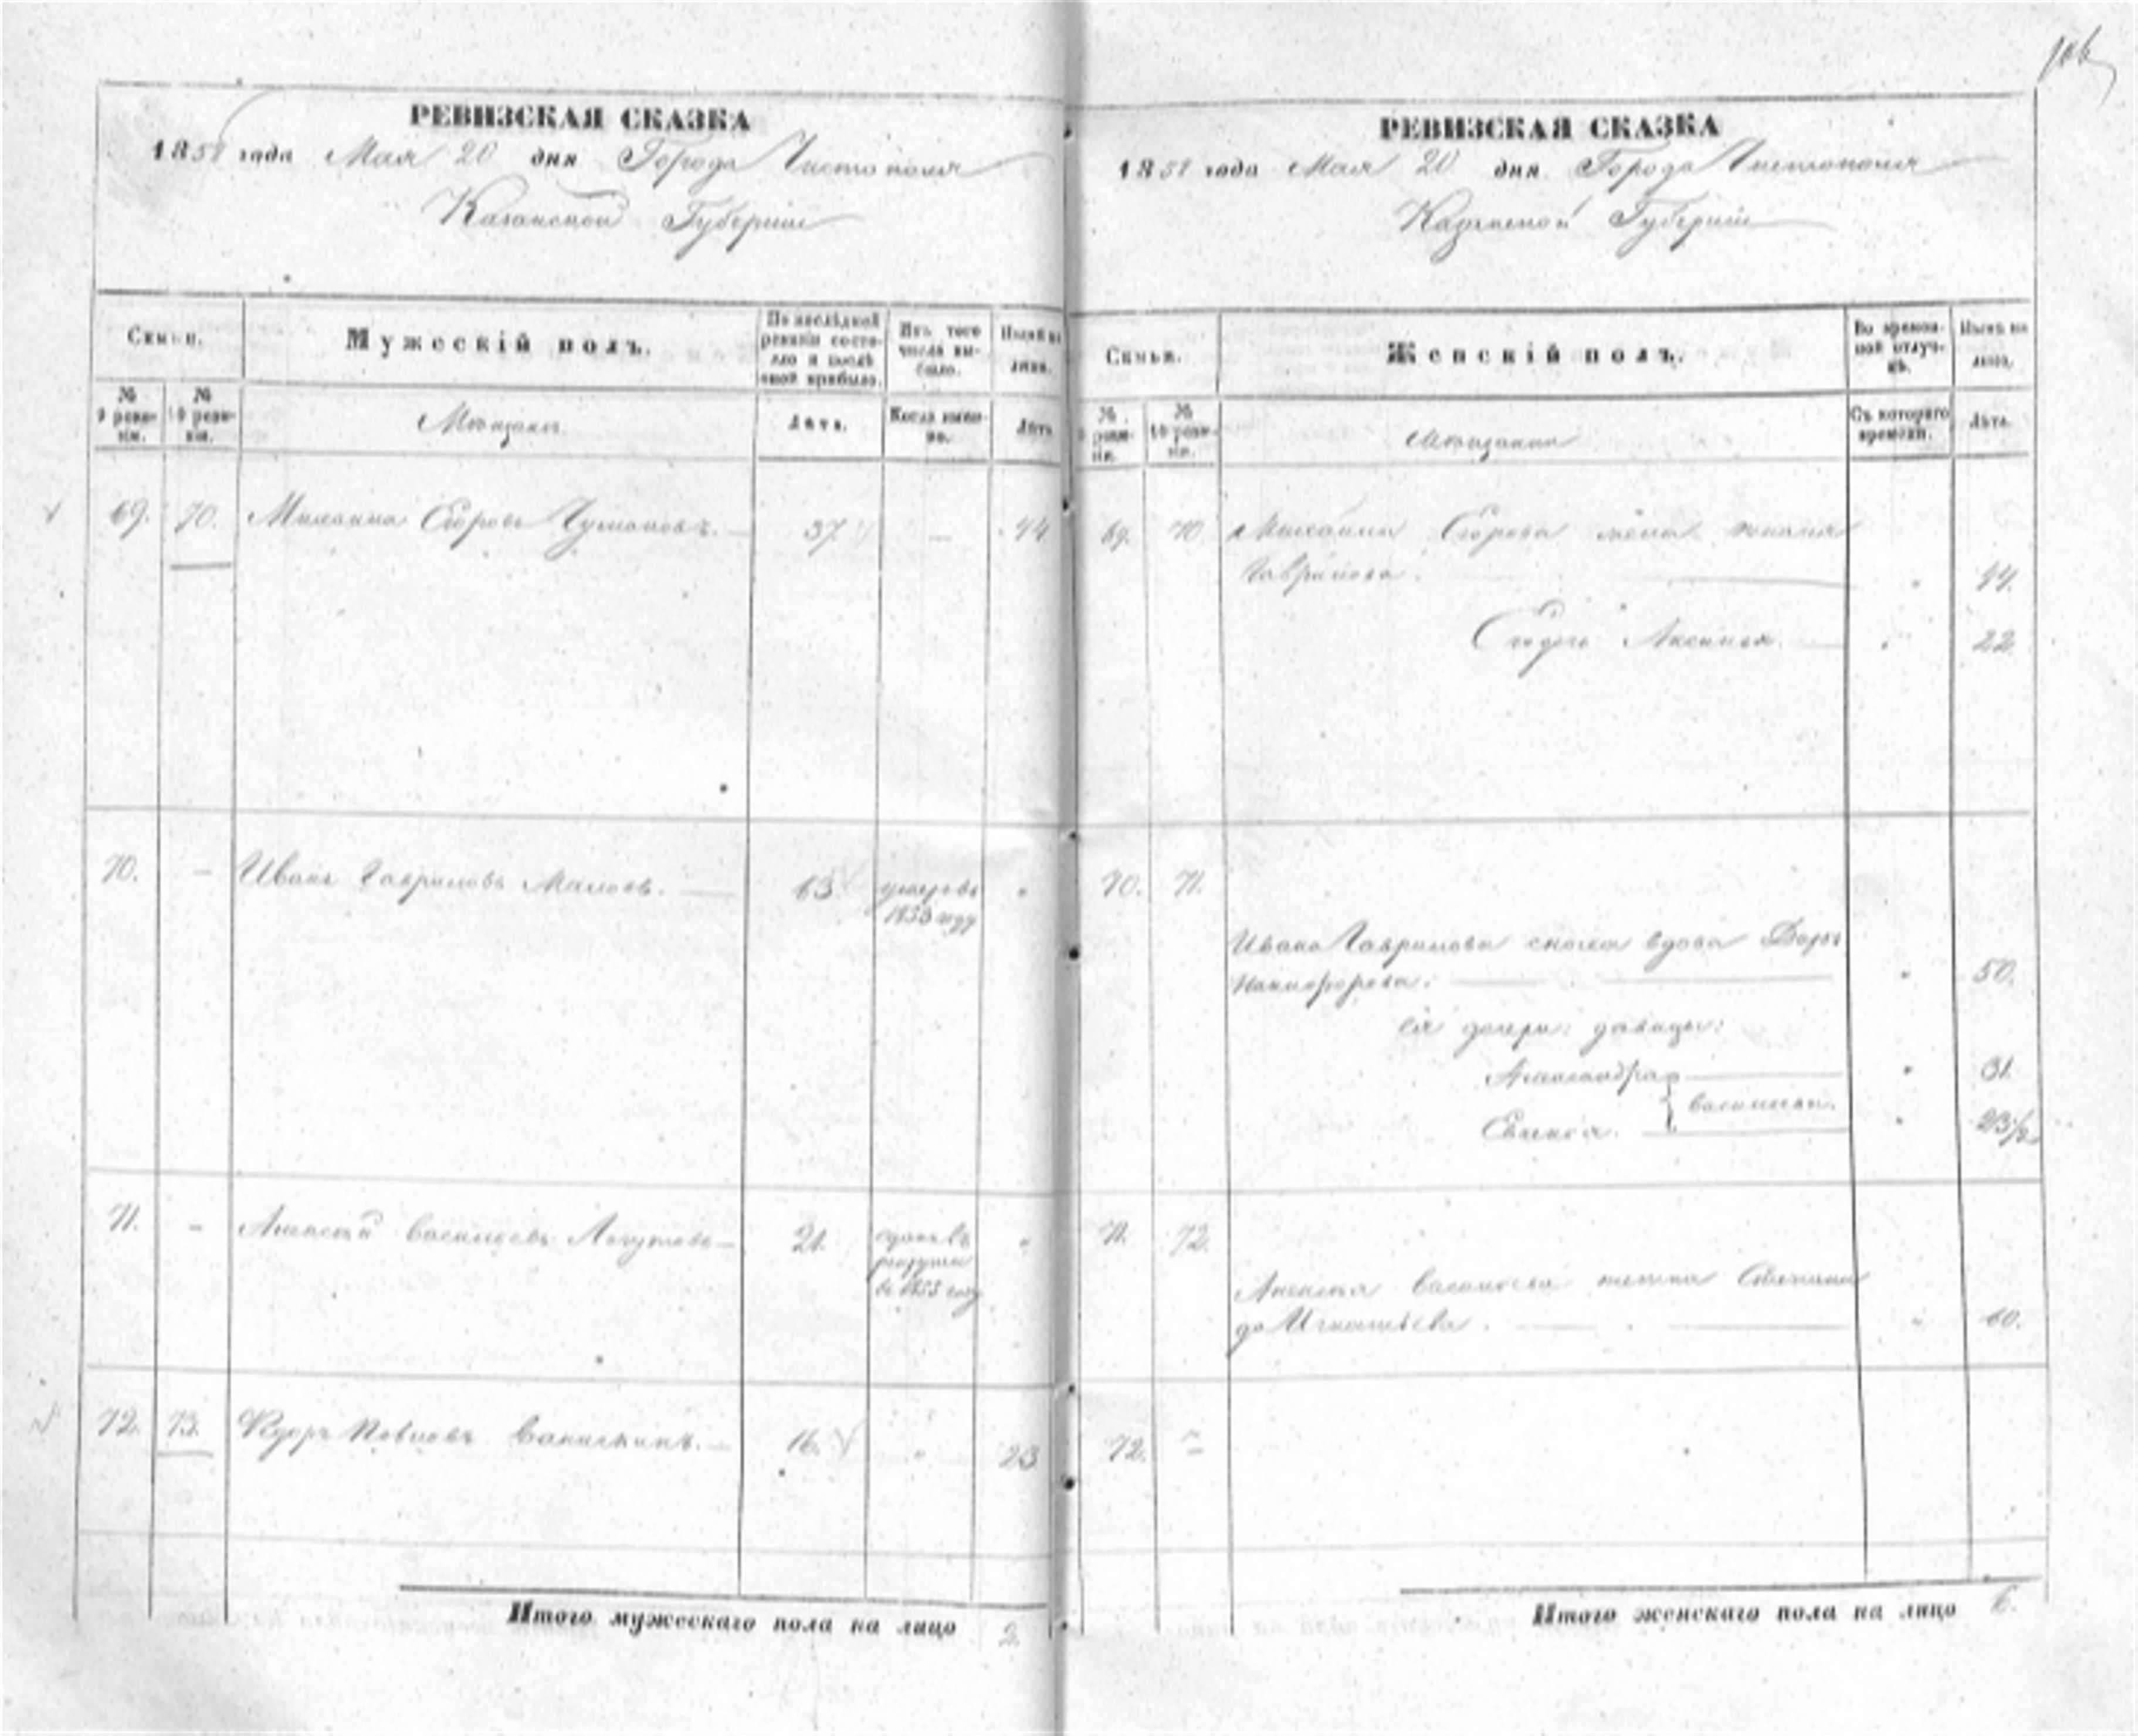 РЕВИЗСКАЯ СКАЗКА
1858 года Мая 20 дня Города Чистополя
Казанской Губернии
Семьи.
Мужескій полъ.
По послѣдней ревизіи состояло и послѣ оной прибыло.
Изъ того числа выбыло.
Нынѣ на лицо.
№ 9 ревизіи.
№ 10 ревизіи.
Мѣщане.
Лѣта.
Когда именно.
Лѣта.
69. 70. Михаила Егоровъ 37. — 44
70. — Иванъ Гавриловъ Маловъ. 63 умеръ въ 1853 году "
71. — Алексѣй Васильевъ 21. сданъ въ рекруты въ 1853 году "
72. 73. Ѳедоръ Павловъ 16. " 23
Итого мужескаго пола на лицо 2.
РЕВИЗСКАЯ СКАЗКА
1858 года Мая 20 дня Города Чистополя
Казанской Губернии
Семьи.
Женскій полъ.
Во временной отлучкѣ.
Нынѣ на лицо.
№ 9 ревизіи.
№ 10 ревизіи.
Мѣщанки
Съ котораго времени.
Лѣта.
69. 70. Михаила Егорова жена
Гаврилова. " 44.
Аксинья. " 22
70. 71.
Ивана Гаврилова сноха вдова Дарья
Никифорова. " 50.
Ея дочери: дѣвицы:
Александра " 31.
Васильевы.
Евгенія. " 23½
71. 72.
Алексѣя Васильева тетка Степани
да Игнатьева. " 60.
72. —
Итого женскаго пола на лицо 6.